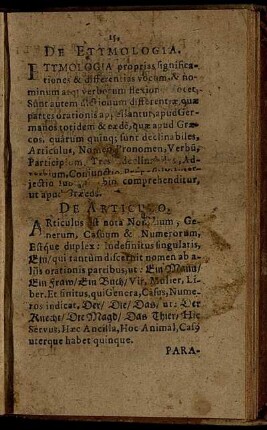 15.
DE ETYMOLOGIA.
ETYMOLOGIA proprias significa-
tiones & differentias vocum, & no-
minum atq; verborum flexiones docet,
Sunt autem dictionum differentiæ, quæ
partes orationis appellantur, apud Ger-
manos totidem & eædē, quæ apud Græ-
cos, quarum quinq; sunt declinabiles,
Articulus, Nomen, Pronomen, Verbū,
Participium, Tres indeclinabiles, Ad-
verbium, Coniunctio, Præpositio
jectio comprehenditur,
ut apud Græcos.
DE ARTICULO.
ARticulus est nota Nominum, Ge-
nerum, Casuum & Numerorum,
Estq́ue duplex: Indefinitus singularis,
Ein/ qui tantùm discernit nomen ab a-
liis orationis partibus, ut: Ein Mann/
Ein Fraw/ Ein Buch/ Vir, Mulier, Li-
ber. Et finitus, qui Genera, Casus, Nume-
ros indicat, Der/ Die/ Das, ut: Der
Knecht/ Die Magd/ Das Thier/ Hic
Servus, Hæc Ancilla, Hoc Animal, Casq
uterque habet quinque.
PARA-